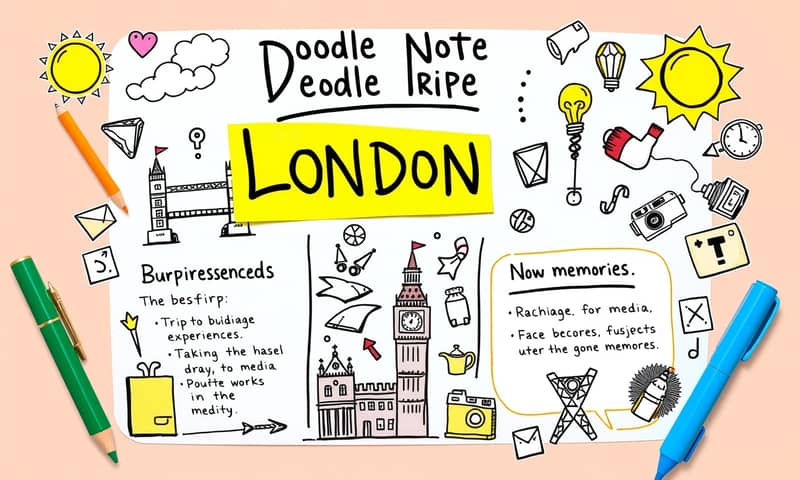 Doodle Note
Deodle Pripe
LONDON
Burpiressenceds
The besfirp:
• Trip to buidiage
experiences.
• Taking the hasel
dray, to media
• Poufte works
in the
medity.
Now memories.
• Rachiage, for media,
• Face becores, fusjects
uter the gone memores.
T